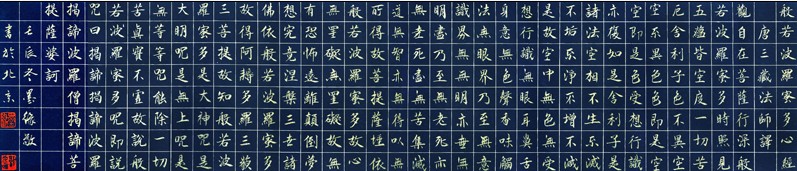 般若波羅蜜多心經
唐三藏法師玄奘譯
觀自在菩薩行深般
若波羅蜜多時照見
五蘊皆空度一切苦
厄舍利子色不異空
空不異色色即是空
空即是色受想行識
亦復如是舍利子是
諸法空相不生不滅
不垢不淨不增不減
是故空中無色無受
想行識無眼耳鼻舌
身意無色聲香味觸
法無眼界乃至無意
識界無無明亦無無
明盡乃至無老死亦
無老死盡無苦集滅
道無智亦無得以無
所得故菩提薩埵依
般若波羅蜜多故心
無罣礙無罣礙故無
有恐怖遠離顛倒夢
想究竟涅槃三世諸
佛依般若波羅蜜多
故得阿耨多羅三藐
三菩提故知般若波
羅蜜多是大神咒是
大明咒是無上咒是
無等等咒能除一切
苦真實不虛故說般
若波羅蜜多咒即說
咒曰揭諦揭諦波羅
揭諦波羅僧揭諦菩
提薩婆訶
壬辰冬墨緣敬
書於北京